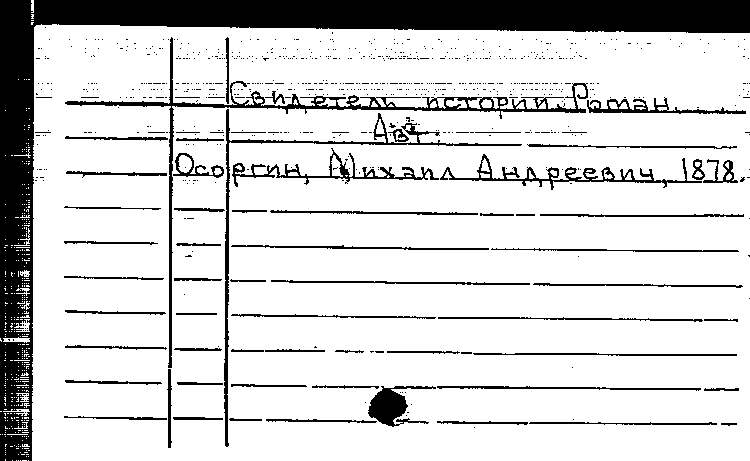 Свидетель истории. Роман.
Авт.
Осоргин, Михаил Андреевич, 1878.